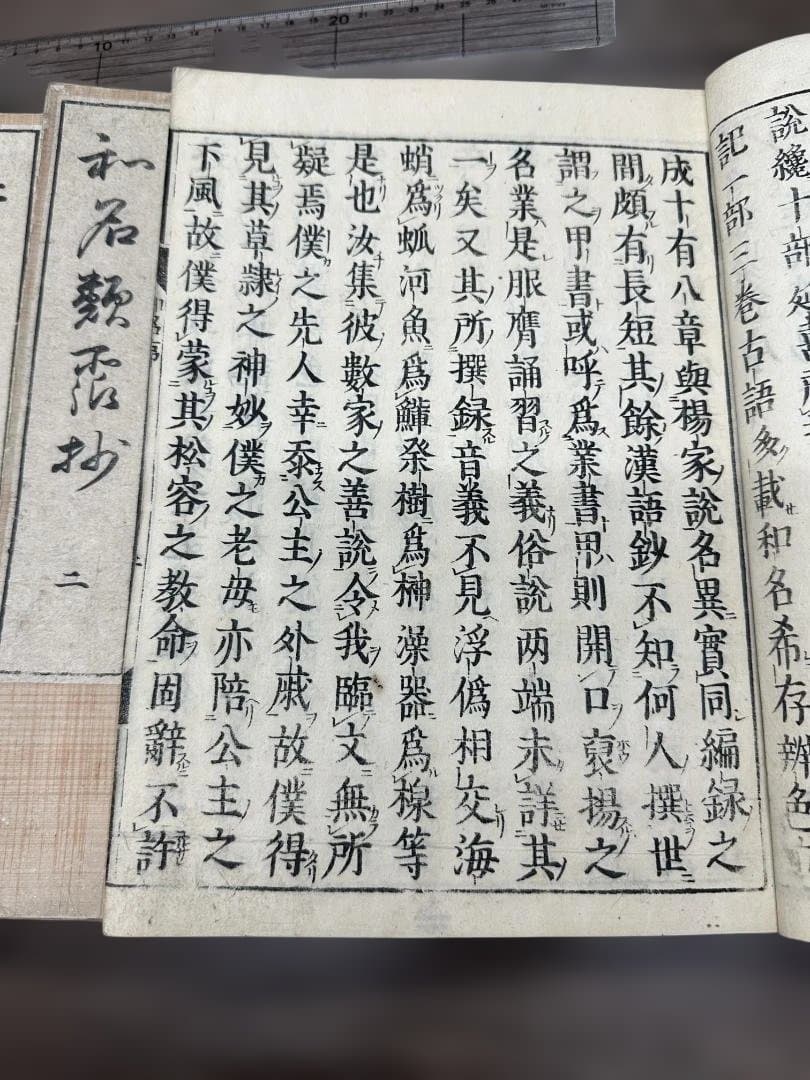 說纔十部
記一部三巻古語多載和名希存辨色
成十有八章與楊家說名異實同編録之
間頗有長短其餘漢語鈔不知何人撰世
謂之甲書或呼爲業書甲則開口裒揚之
名業是服膺誦習之義俗說两端未詳其
一矣又其所撰録音義不見浮偽相交海
蛸爲河魚爲鱆祭樹爲榊澡器爲楾等
是也汝集彼數家之善說令我臨文無所
疑焉僕之先人幸忝公主之外戚故僕得
見其草隷之神妙僕之老毋亦陪公主之
下風故僕得蒙其松容之教命固辭不許
和名類聚抄
二
10 20